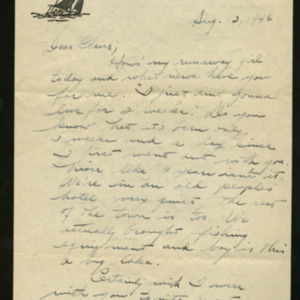 Aug. 2, 1946
Dear Claire,
How's my runaway girl
today and what news have you
for me. I just ain't gonna
live for 2 weeks! Do you
know that it's been only
3 weeks and a day since
I first went out with you.
like 3 years isn't it.
We're in an old people's
hotel, very quiet. The rest
of the town is too. We
actually brought fishing
equipment and boy is this
a big lake.
Certainly wish I were
with you